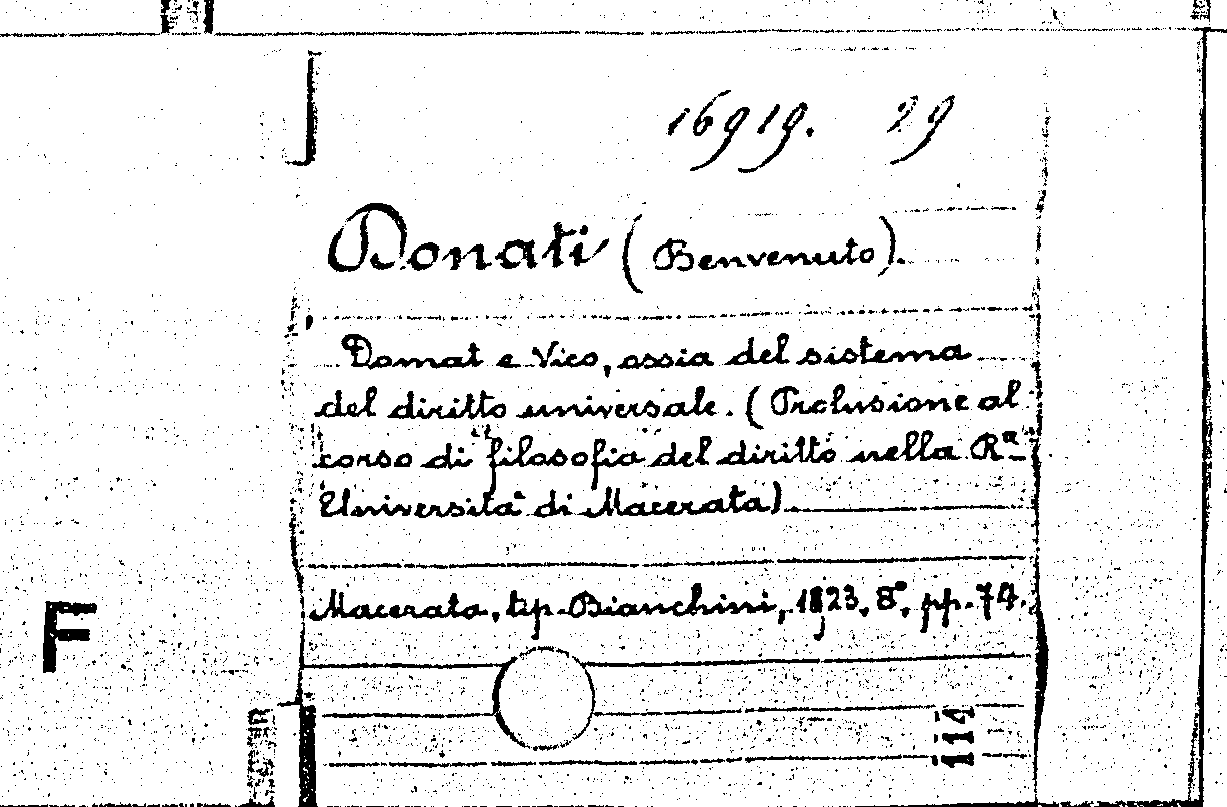 16919. 29
Donati (Benvenuto).
Domat e Vico, ossia del sistema
del diritto universale. (Prolusione al
corso di filosofia del diritto nella Rª
Università di Macerata).
Macerata, tip. Bianchini, 1923, 8°, pp. 74.
F
114